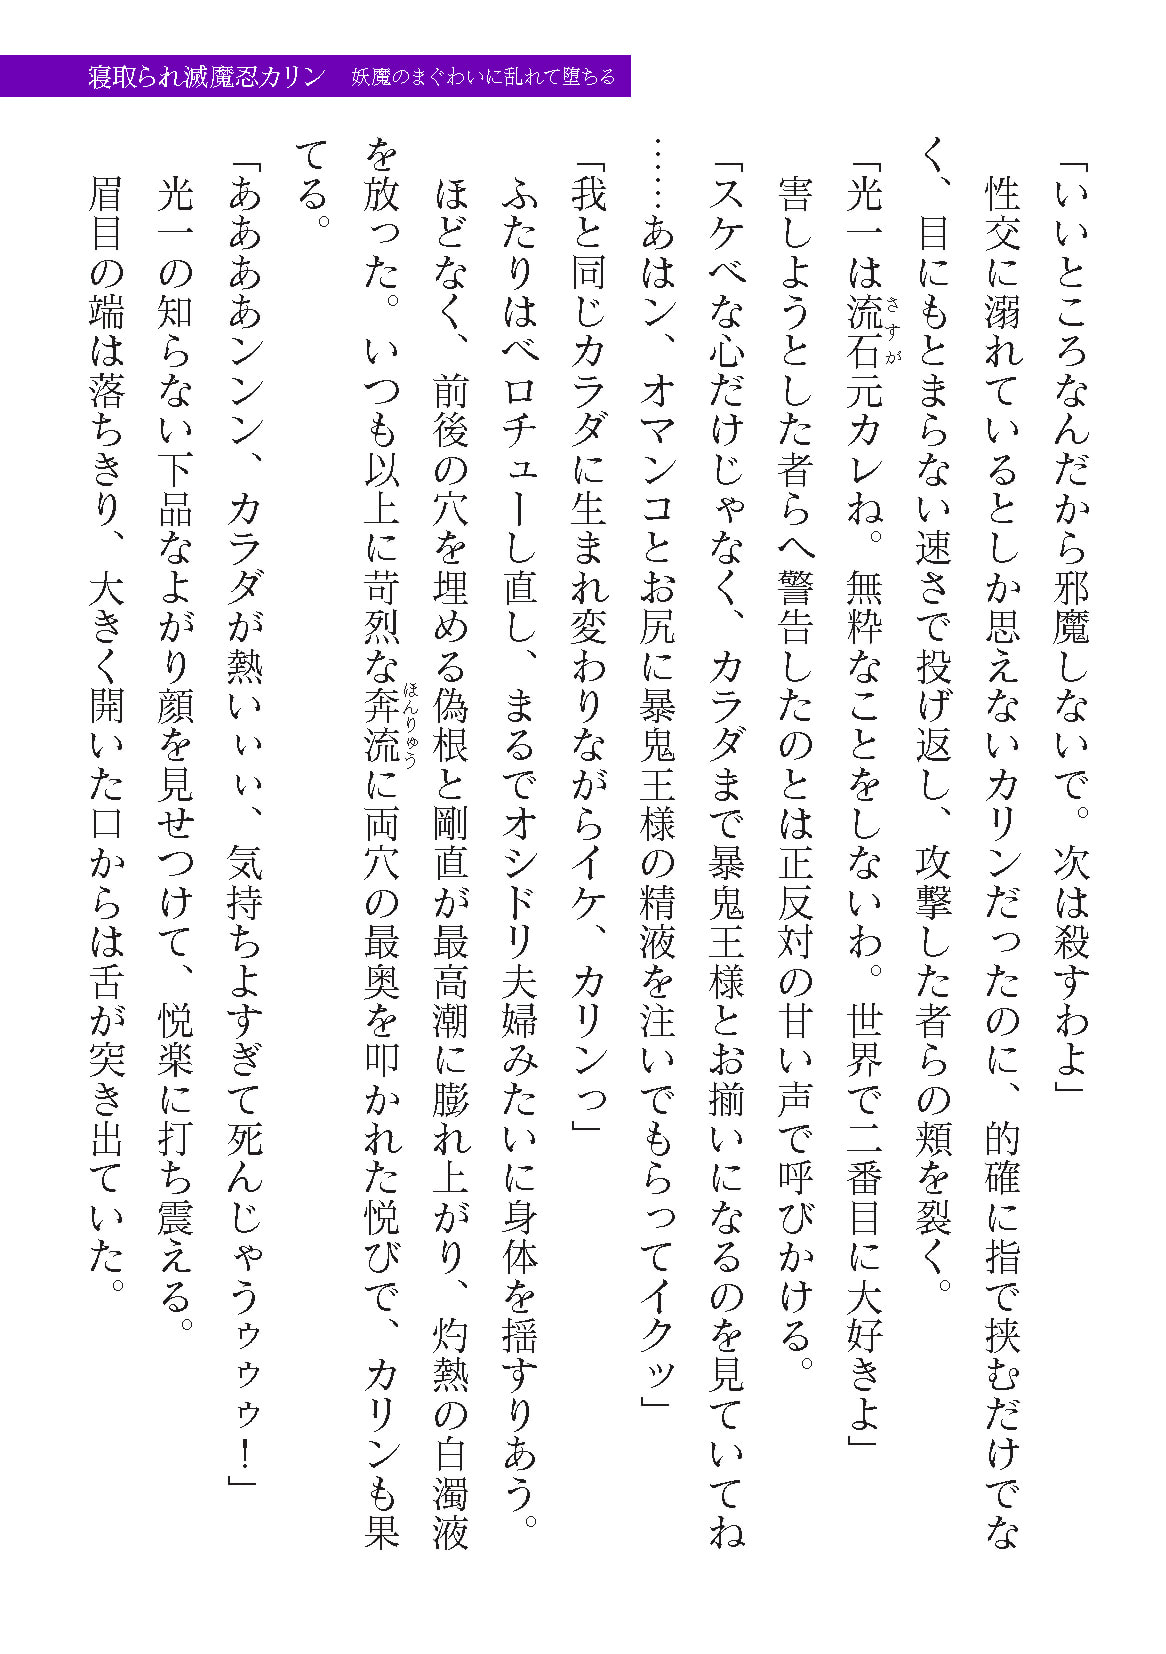 寝取られ滅魔忍カリン　妖魔のまぐわいに乱れて堕ちる
「いいところなんだから邪魔しないで。次は殺すわよ」
　性交に溺れているとしか思えないカリンだったのに、的確に指で挟むだけでな
く、目にもとまらない速さで投げ返し、攻撃した者らの頬を裂く。
「光一は流石元カレね。無粋なことをしないわ。世界で二番目に大好きよ」
さすが
　害しようとした者らへ警告したのとは正反対の甘い声で呼びかける。
「スケベな心だけじゃなく、カラダまで暴鬼王様とお揃いになるのを見ていてね
……あはン、オマンコとお尻に暴鬼王様の精液を注いでもらってイクッ」
「我と同じカラダに生まれ変わりながらイケ、カリンっ」
　ふたりはベロチューし直し、まるでオシドリ夫婦みたいに身体を揺すりあう。
　ほどなく、前後の穴を埋める偽根と剛直が最高潮に膨れ上がり、灼熱の白濁液
を放った。いつも以上に苛烈な奔流に両穴の最奥を叩かれた悦びで、カリンも果
ほんりゅう
てる。
「ああああンンン、カラダが熱いぃぃ、気持ちよすぎて死んじゃうゥゥゥ！」
　光一の知らない下品なよがり顔を見せつけて、悦楽に打ち震える。
　眉目の端は落ちきり、大きく開いた口からは舌が突き出ていた。